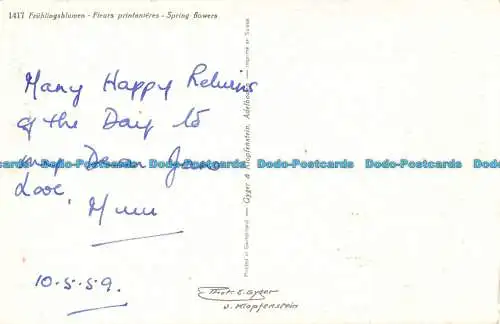 1417 Frühlingsblumen - Fleurs printanières - Spring flowers
Many Happy Returns
of the Day to
my Dear
Love,
Mum
10.5.59.
Printed in Switzerland - Gyger & Klopfenstein, Adelboden - Imprimé en Suisse
Phot. E. Gyger
u. Klopfenstein
Dodo-Postcards Dodo-Postcards Dodo-Postcards Dodo-Postcards Dodo-Postcards